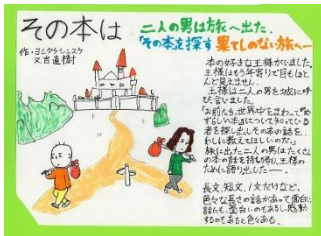 その本は
作・ヨシタケシンスケ
又吉直樹
二人の男は旅へ出た。
「その本を探す 果てしのない旅へ―
本の好きな王様がいました。
王様はもう年寄りで目もほと
んど見えません。
王様は二人の男をお城に呼
び言いました。
「お前たち、世界中をまわって『め
ずらしい本』について知っている
者を探し出し、その本の話を、
わしに教えてほしいのだ。」
旅に出た二人の男はたくさ
んの本の話を持ち帰り、王様の
ために語り出した―。
長文、短文、1文だけなど、
色々な長さの話があって面白い
話にも、面白いのもあるし、感動
するのもあると色々ある。